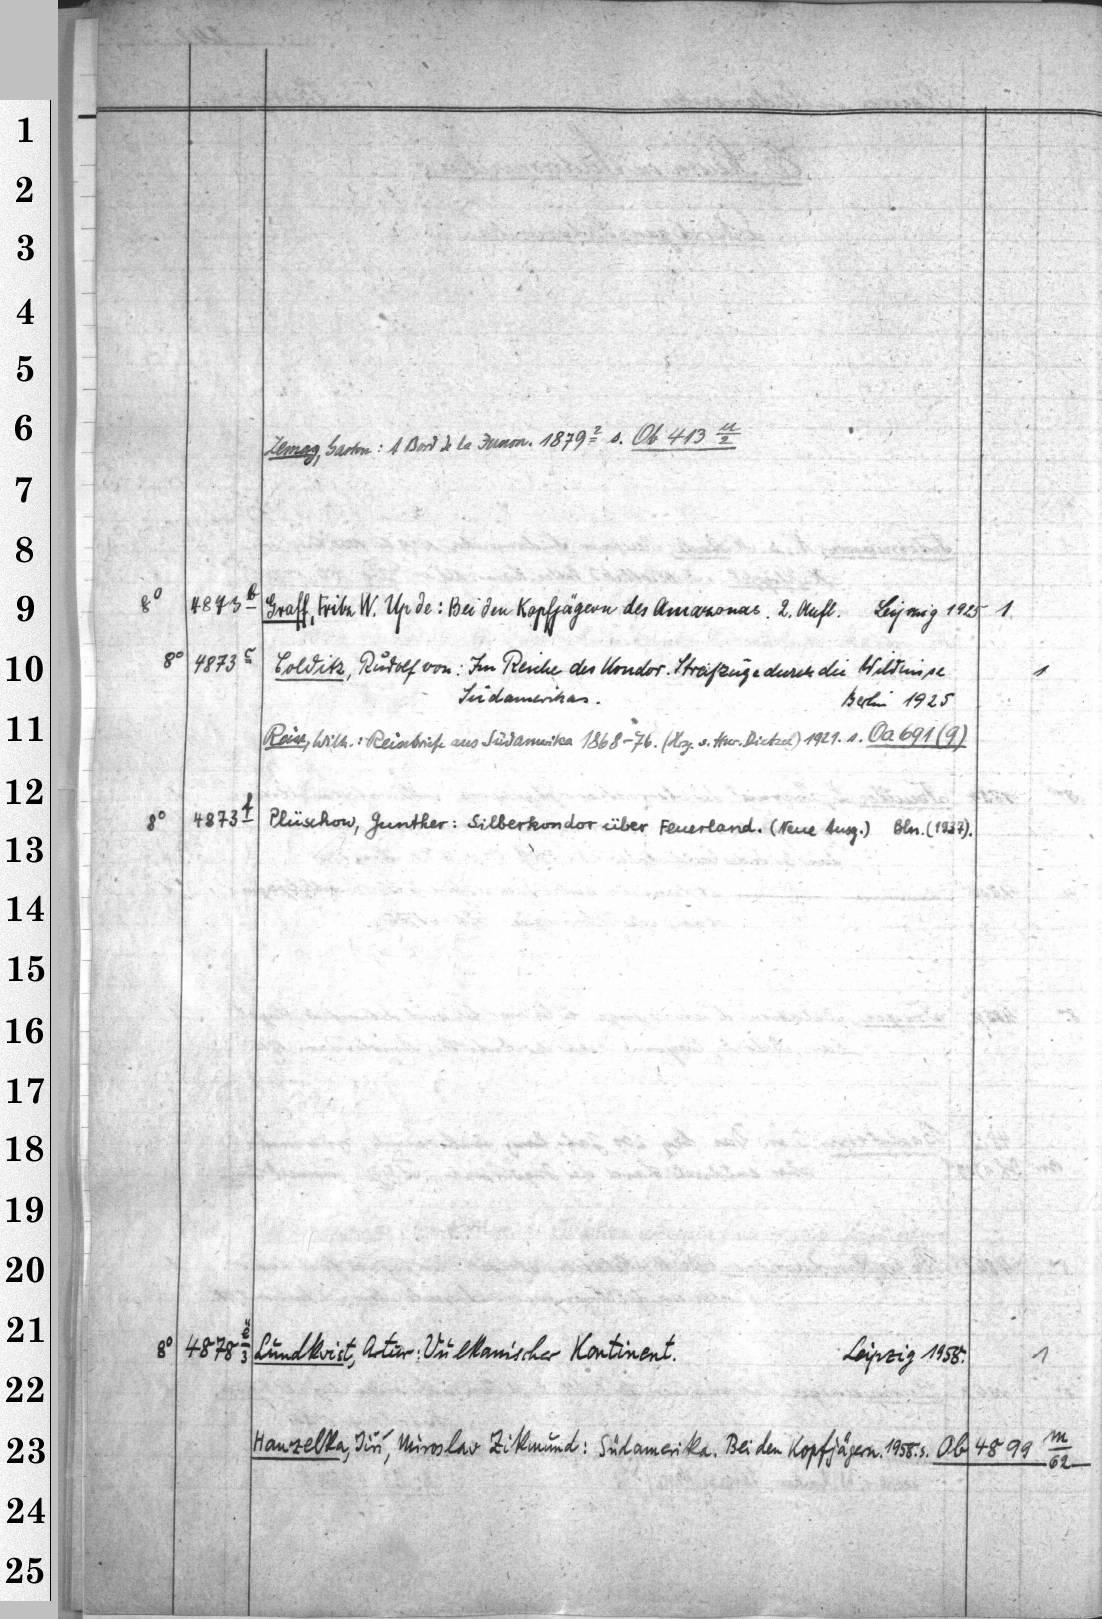 1
2
3
4
5
6
Lemay, Gaston: A Bord de la Junon. 1879 2 s. Ob 413 u/2
7
8
9
8° 4873 b Graff, Fritz W. Up de: Bei den Kopfjägern des Amazonas. 2. Aufl. Leipzig 1925 1.
10
8° 4873 c Colditz, Rudolf von: Im Reiche des Kondor. Streifzüge durch die Wildnisse 1
Südamerikas. Berlin 1925
11
Reiss, Wilh.: Reisebriefe aus Südamerika 1868-76. (Hrg. v. Dietzel) 1921. s. Oa 691 (9)
12
8° 4873 f Plüschow, Gunther: Silberkondor über Feuerland. (Neue Ausg.) Bln. (1937).
13
14
15
16
17
18
19
20
21
8° 4878 3 Lundkvist, Artur: Vulkanischer Kontinent. Leipzig 1958. 1
22
23
Hanzelka, Jiří, Miroslav Zikmund: Südamerika. Bei den Kopfjägern. 1958. s. Ob 4899 m/62
24
25